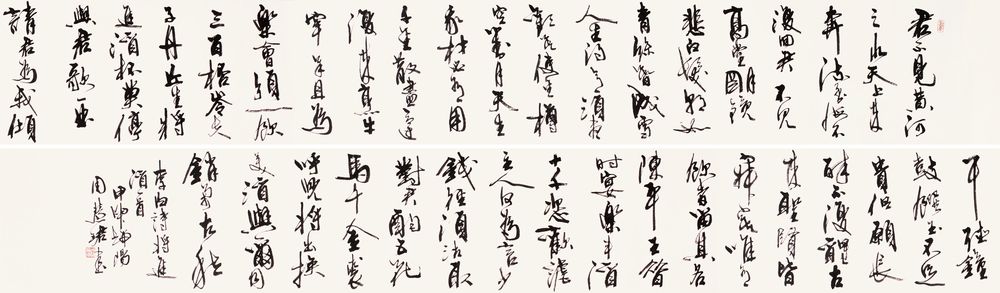 君不見黄河
之水天上来
奔流到海不
復回君不見
高堂明鏡
悲白髮朝如
青絲暮成雪
人生得意須
盡歡莫使金樽
空對月天生
我材必有用
千金散盡還
復来烹羊
宰牛且為
樂會須一飲
三百杯岑夫
子丹丘生將
進酒杯莫停
與君歌一曲
請君為我傾
耳聽鐘
鼓饌玉不足
貴但願長
醉不復醒古
来聖賢皆
寂寞惟有
飲者留其名
陳王昔
時宴樂斗酒
十千恣歡謔
主人何為言少
錢徑須沽取
對君酌五花
馬千金裘
呼兒將出換
美酒與爾同
銷萬古愁
李白詩將進
酒一首
周慧珺書